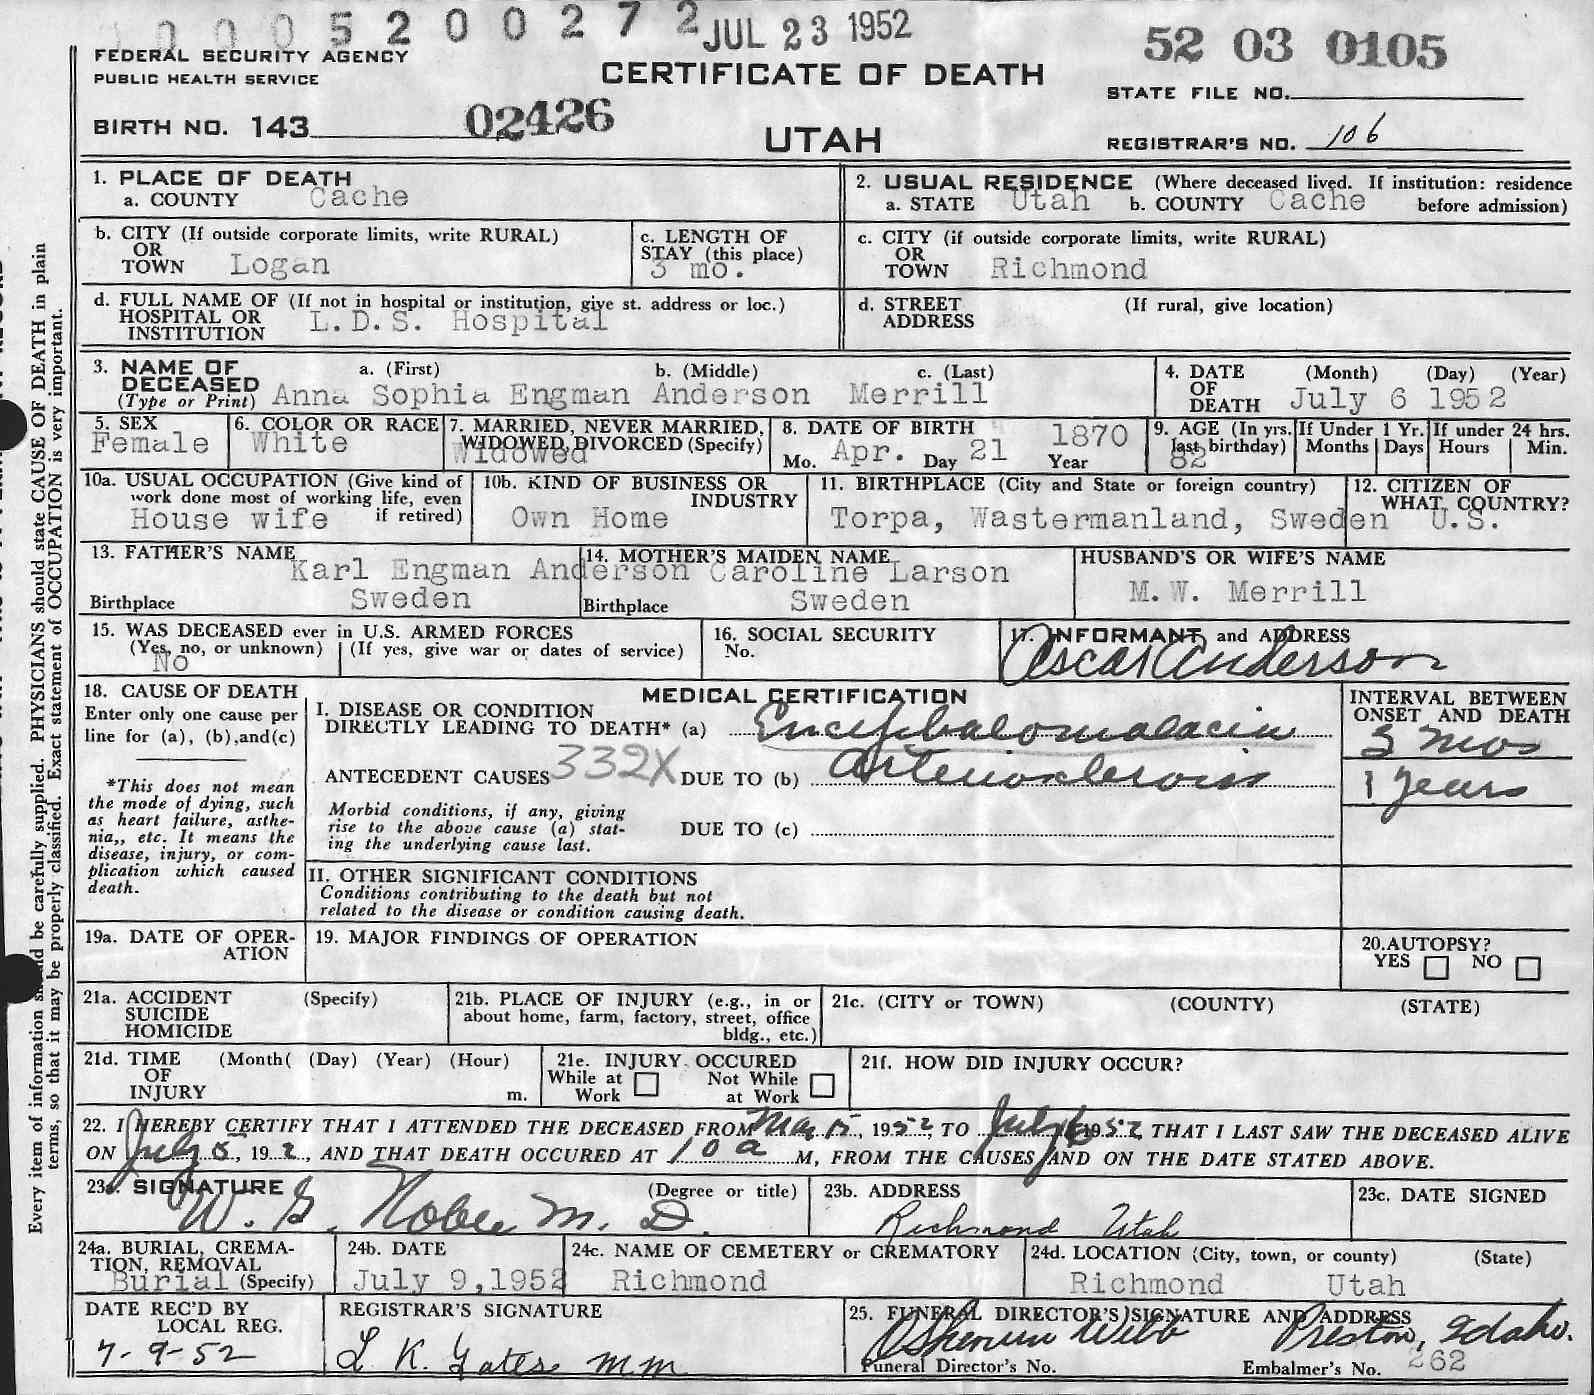 0005200272 JUL 23 1952
52 03 0105
FEDERAL SECURITY AGENCY
PUBLIC HEALTH SERVICE
CERTIFICATE OF DEATH
STATE FILE NO.
BIRTH NO. 143 02426
UTAH
REGISTRAR'S NO. 106
1. PLACE OF DEATH
a. COUNTY Cache
2. USUAL RESIDENCE (Where deceased lived. If institution: residence
a. STATE Utah b. COUNTY Cache before admission)
b. CITY (If outside corporate limits, write RURAL)
OR
TOWN Logan
c. LENGTH OF
STAY (this place)
3 mo.
c. CITY (if outside corporate limits, write RURAL)
OR
TOWN Richmond
d. FULL NAME OF (If not in hospital or institution, give st. address or loc.)
HOSPITAL OR
INSTITUTION L.D.S. Hospital
d. STREET (If rural, give location)
ADDRESS
3. NAME OF a. (First) b. (Middle) c. (Last)
DECEASED
(Type or Print) Anna Sophia Engman Anderson Merrill
4. DATE (Month) (Day) (Year)
OF
DEATH July 6 1952
5. SEX
Female
6. COLOR OR RACE
White
7. MARRIED, NEVER MARRIED,
WIDOWED, DIVORCED (Specify)
Widowed
8. DATE OF BIRTH
Mo. Apr. Day 21 Year 1870
9. AGE (In yrs.
last birthday)
82
If Under 1 Yr.
Months Days
If under 24 hrs.
Hours Min.
10a. USUAL OCCUPATION (Give kind of
work done most of working life, even
if retired)
House wife
10b. KIND OF BUSINESS OR
INDUSTRY
Own Home
11. BIRTHPLACE (City and State or foreign country)
Torpa, Wastermanland, Sweden
12. CITIZEN OF
WHAT COUNTRY?
U.S.
13. FATHER'S NAME
Karl Engman Anderson
Birthplace Sweden
14. MOTHER'S MAIDEN NAME
Caroline Larson
Birthplace Sweden
HUSBAND'S OR WIFE'S NAME
M.W. Merrill
15. WAS DECEASED ever in U.S. ARMED FORCES
(Yes, no, or unknown) (If yes, give war or dates of service)
No
16. SOCIAL SECURITY
No.
17. INFORMANT and ADDRESS
Oscar Anderson
18. CAUSE OF DEATH
Enter only one cause per
line for (a), (b),and(c)
*This does not mean
the mode of dying, such
as heart failure, asthe-
nia,, etc. It means the
disease, injury, or com-
plication which caused
death.
MEDICAL CERTIFICATION
I. DISEASE OR CONDITION
DIRECTLY LEADING TO DEATH* (a) Encephalomalacia
ANTECEDENT CAUSES 332X DUE TO (b) Arteriosclerosis
Morbid conditions, if any, giving
rise to the above cause (a) stat-
ing the underlying cause last.
DUE TO (c)
INTERVAL BETWEEN
ONSET AND DEATH
3 mos
1 years
II. OTHER SIGNIFICANT CONDITIONS
Conditions contributing to the death but not
related to the disease or condition causing death.
19a. DATE OF OPER-
ATION
19. MAJOR FINDINGS OF OPERATION
20.AUTOPSY?
YES NO
21a. ACCIDENT (Specify)
SUICIDE
HOMICIDE
21b. PLACE OF INJURY (e.g., in or
about home, farm, factory, street, office
bldg., etc.)
21c. (CITY or TOWN) (COUNTY) (STATE)
21d. TIME (Month( (Day) (Year) (Hour)
OF
INJURY m.
21e. INJURY OCCURED
While at Work Not While at Work
21f. HOW DID INJURY OCCUR?
22. I HEREBY CERTIFY THAT I ATTENDED THE DECEASED FROM Mar 15, 1952, TO July 6 1952, THAT I LAST SAW THE DECEASED ALIVE
ON July 5, 19 2, AND THAT DEATH OCCURED AT 10 a M, FROM THE CAUSES AND ON THE DATE STATED ABOVE.
23a. SIGNATURE (Degree or title)
W. G. Noble M. D.
23b. ADDRESS
Richmond Utah
23c. DATE SIGNED
24a. BURIAL, CREMA-
TION, REMOVAL
Burial (Specify)
24b. DATE
July 9,1952
24c. NAME OF CEMETERY or CREMATORY
Richmond
24d. LOCATION (City, town, or county) (State)
Richmond Utah
DATE REC'D BY
LOCAL REG.
7-9-52
REGISTRAR'S SIGNATURE
L. K. Gates mm
25. FUNERAL DIRECTOR'S SIGNATURE AND ADDRESS
Webb Preston, Idaho.
Funeral Director's No. Embalmer's No. 262
Every item of information should be carefully supplied. PHYSICIANS should state CAUSE OF DEATH in plain
terms, so that it may be properly classified. Exact statement of OCCUPATION is very important.